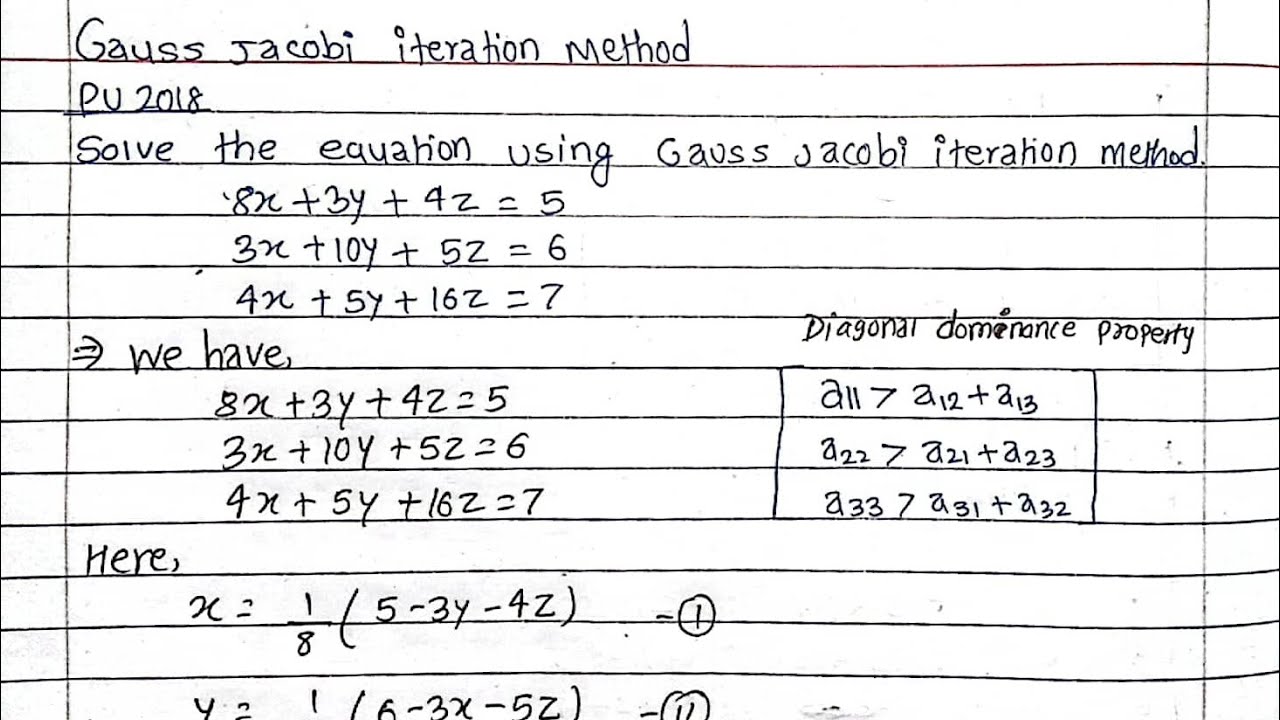 Gauss Jacobi iteration Method
PU 2018
Solve the equation using Gauss Jacobi iteration method.
8x + 3y + 4z = 5
3x + 10y + 5z = 6
4x + 5y + 16z = 7
⇒ We have,
8x + 3y + 4z = 5
3x + 10y + 5z = 6
4x + 5y + 16z = 7
Diagonal dominance property
a11 > a12 + a13
a22 > a21 + a23
a33 > a31 + a32
Here,
x = 1/8 ( 5 - 3y - 4z) - ①
y = 1 ( 6 - 3x - 5z) - ⑪